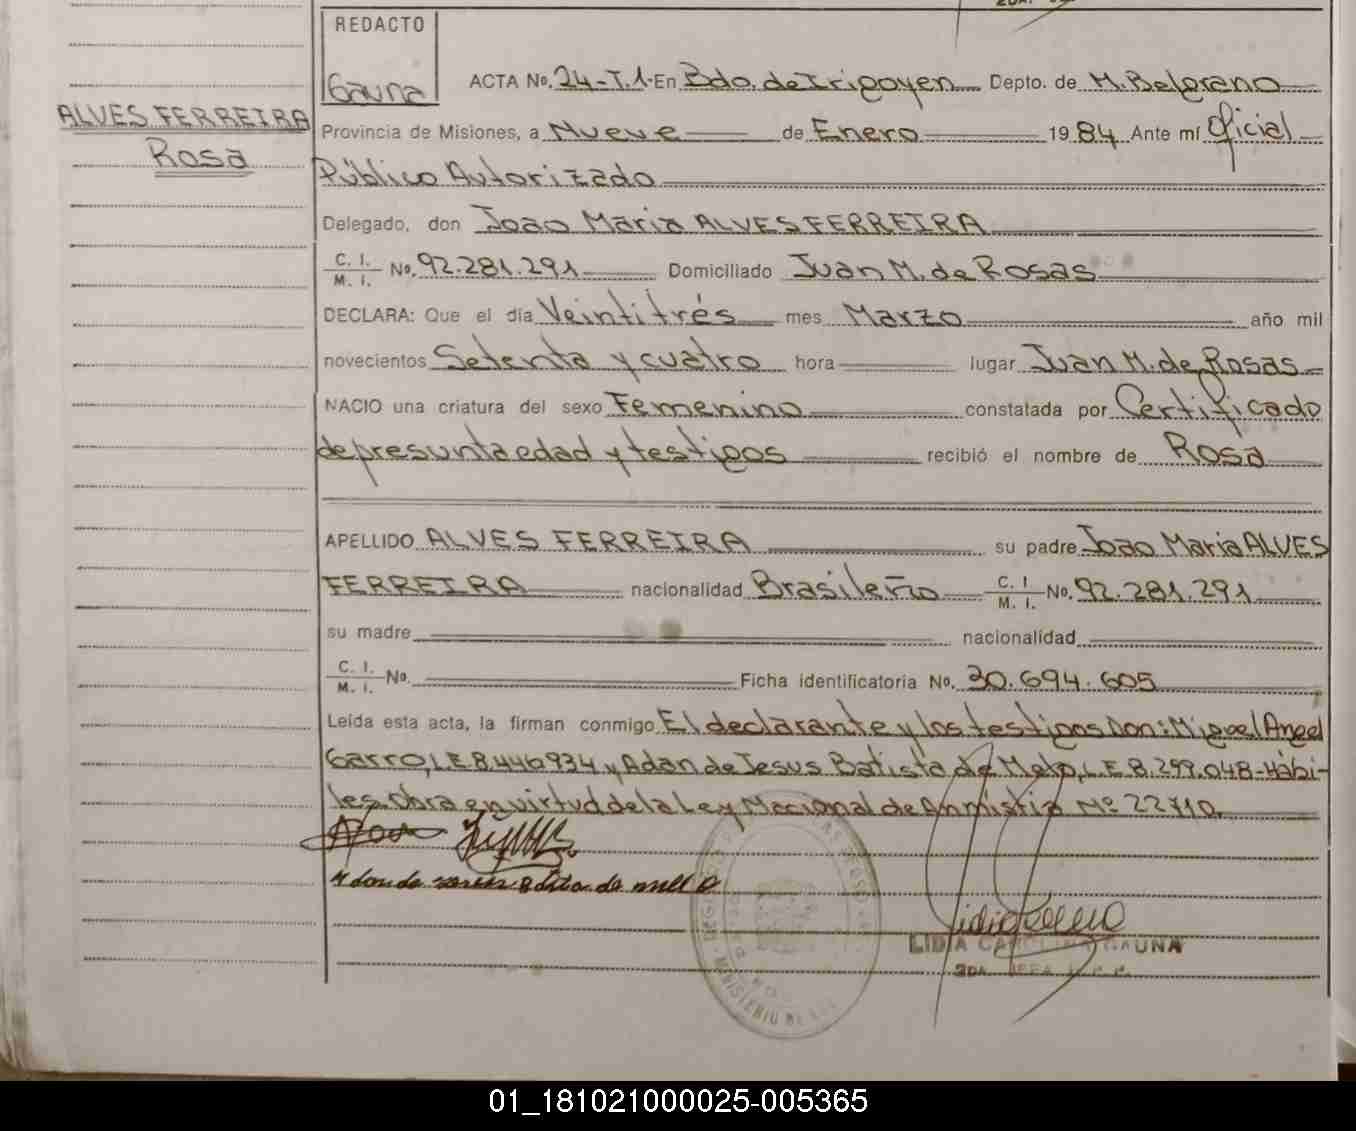 REDACTO
Gauna
ALVES FERREIRA
Rosa
ACTA No. 24-T.1- En Bdo. de Irigoyen Depto. de M. Belgrano
Provincia de Misiones, a Nueve de Enero 1984 Ante mí Oficial
Público Autorizado
Delegado, don Joao Maria ALVES FERREIRA
C. I. M. I. No. 92.281.291 Domiciliado Juan M. de Rosas
DECLARA: Que el día Veintitrés mes Marzo año mil
novecientos Setenta y cuatro hora lugar Juan M. de Rosas
NACIO una criatura del sexo Femenino constatada por Certificado
de presunta edad y testigos recibió el nombre de Rosa
APELLIDO ALVES FERREIRA su padre Joao Maria ALVES
FERREIRA nacionalidad Brasileño C. I. M. I. No. 92.281.291
su madre nacionalidad
C. I. M. I. No. Ficha identificatoria No. 30.694.605
Leída esta acta, la firman conmigo El declarante y los testigos Don: Miguel Angel
Garro, L.E 8.446934 y Adan de Jesus Batista de Melo, L.E 8.299.048-Hábi-
les. Obra en virtud de la Ley Nacional de Anmistia Nº 22710.
LIDIA CAROLINA GAUNA
2DA. JEFA
MINISTERIO DE
01_181021000025-005365